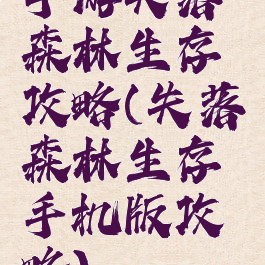 手游失落
森林生存
攻略(失落
森林生存
手机版攻
略)